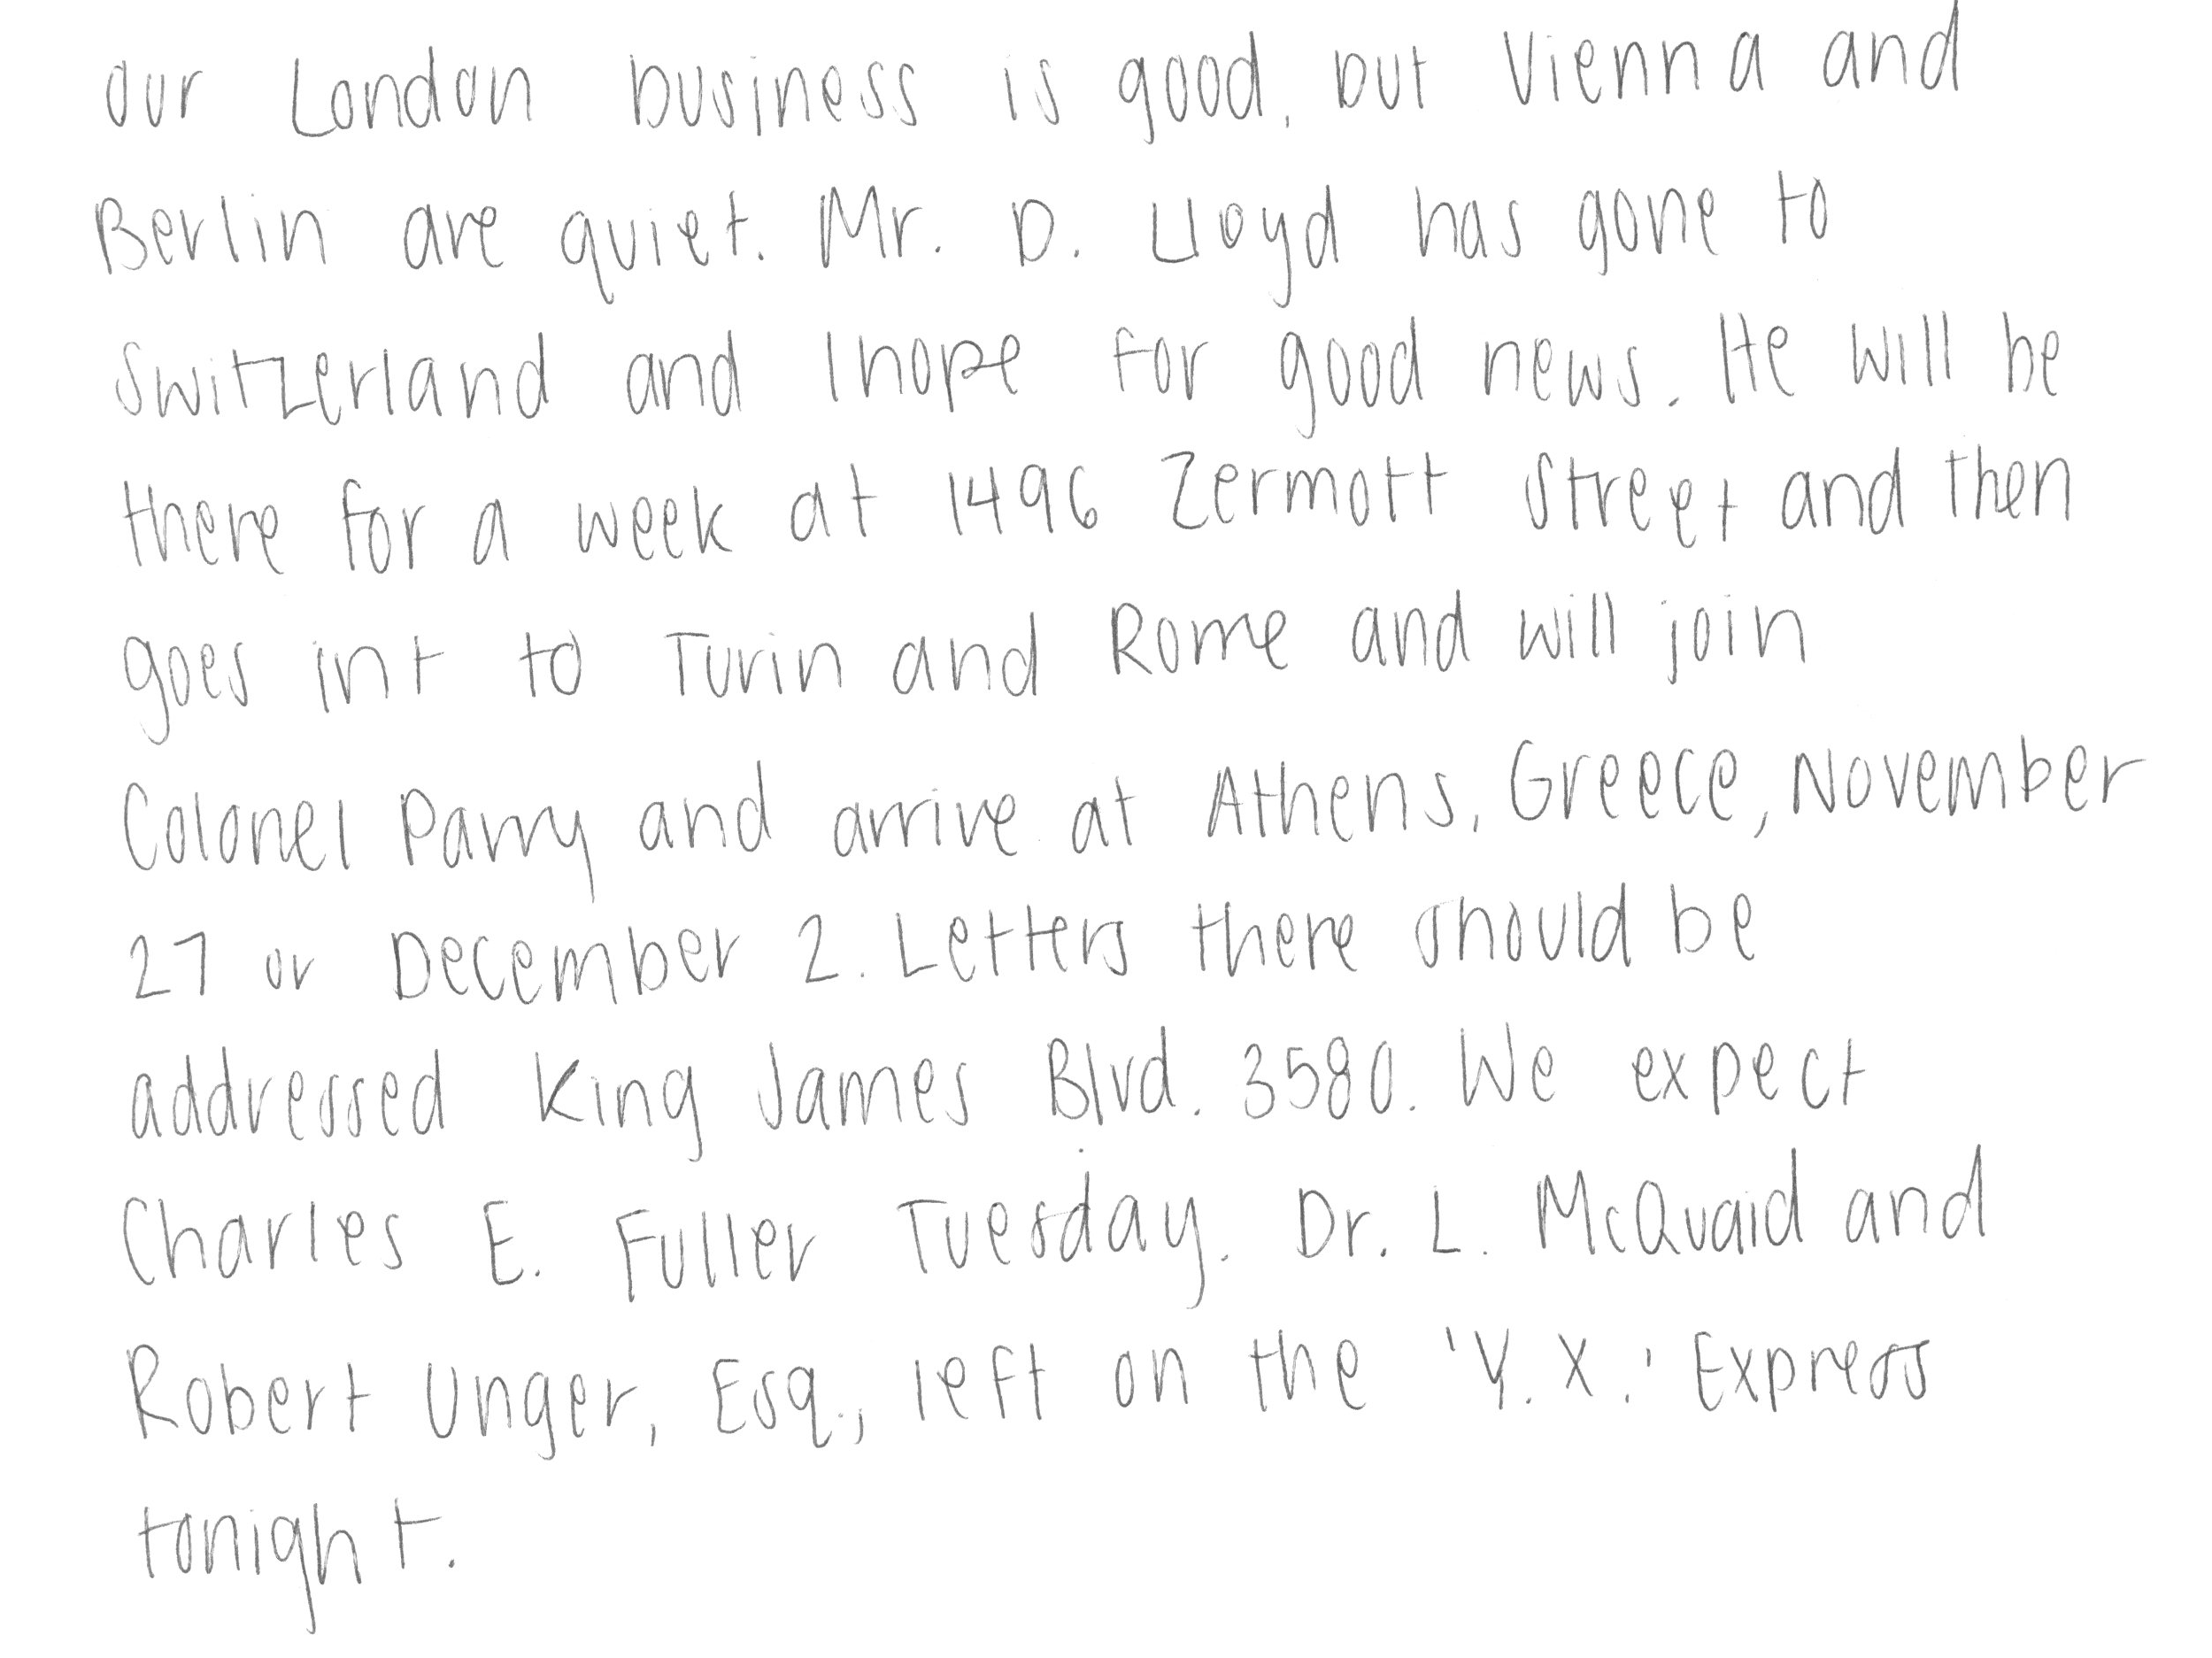 Our London business is good, but Vienna and
Berlin are quiet. Mr. D. Lloyd has gone to
Switzerland and I hope for good news. He will be
there for a week at 1496 Zermott Street and then
goes int to Turin and Rome and will join
Colonel Parry and arrive at Athens, Greece, November
27 or December 2. Letters there should be
addressed King James Blvd. 3580. We expect
Charles E. Fuller Tuesday. Dr. L. McQuaid and
Robert Unger, Esq., left on the 'Y.X.' Express
tonight.